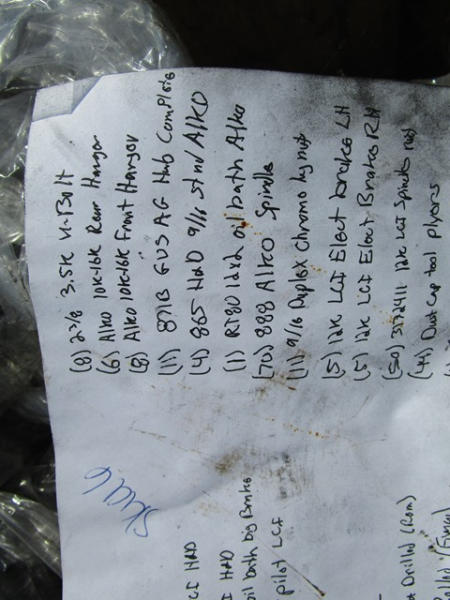 (8) 2 3/8 3.5K U-Bolt
(6) Alko 10K-16K Rear Hanger
(8) Alko 10K-16K Front Hanger
(11) 871B GUS AG Hub Complete
(4) 865 H&D 9/16 stud Alko
(1) R780 12x2 oil bath Alko
(70) 888 Alko Spindle
(11) 9/16 Duplex Chrome lug nut
(5) 12K LCI Elect brakes LH
(5) 12K LCI Elect Brakes RH
(50) 3172411 12K LCI Spindle nut
(44) Dust cap tool plyers
Skid 6
LCI H&D
LCI H&D
oil bath Brake
pilot LCI
Drilled (Rom)